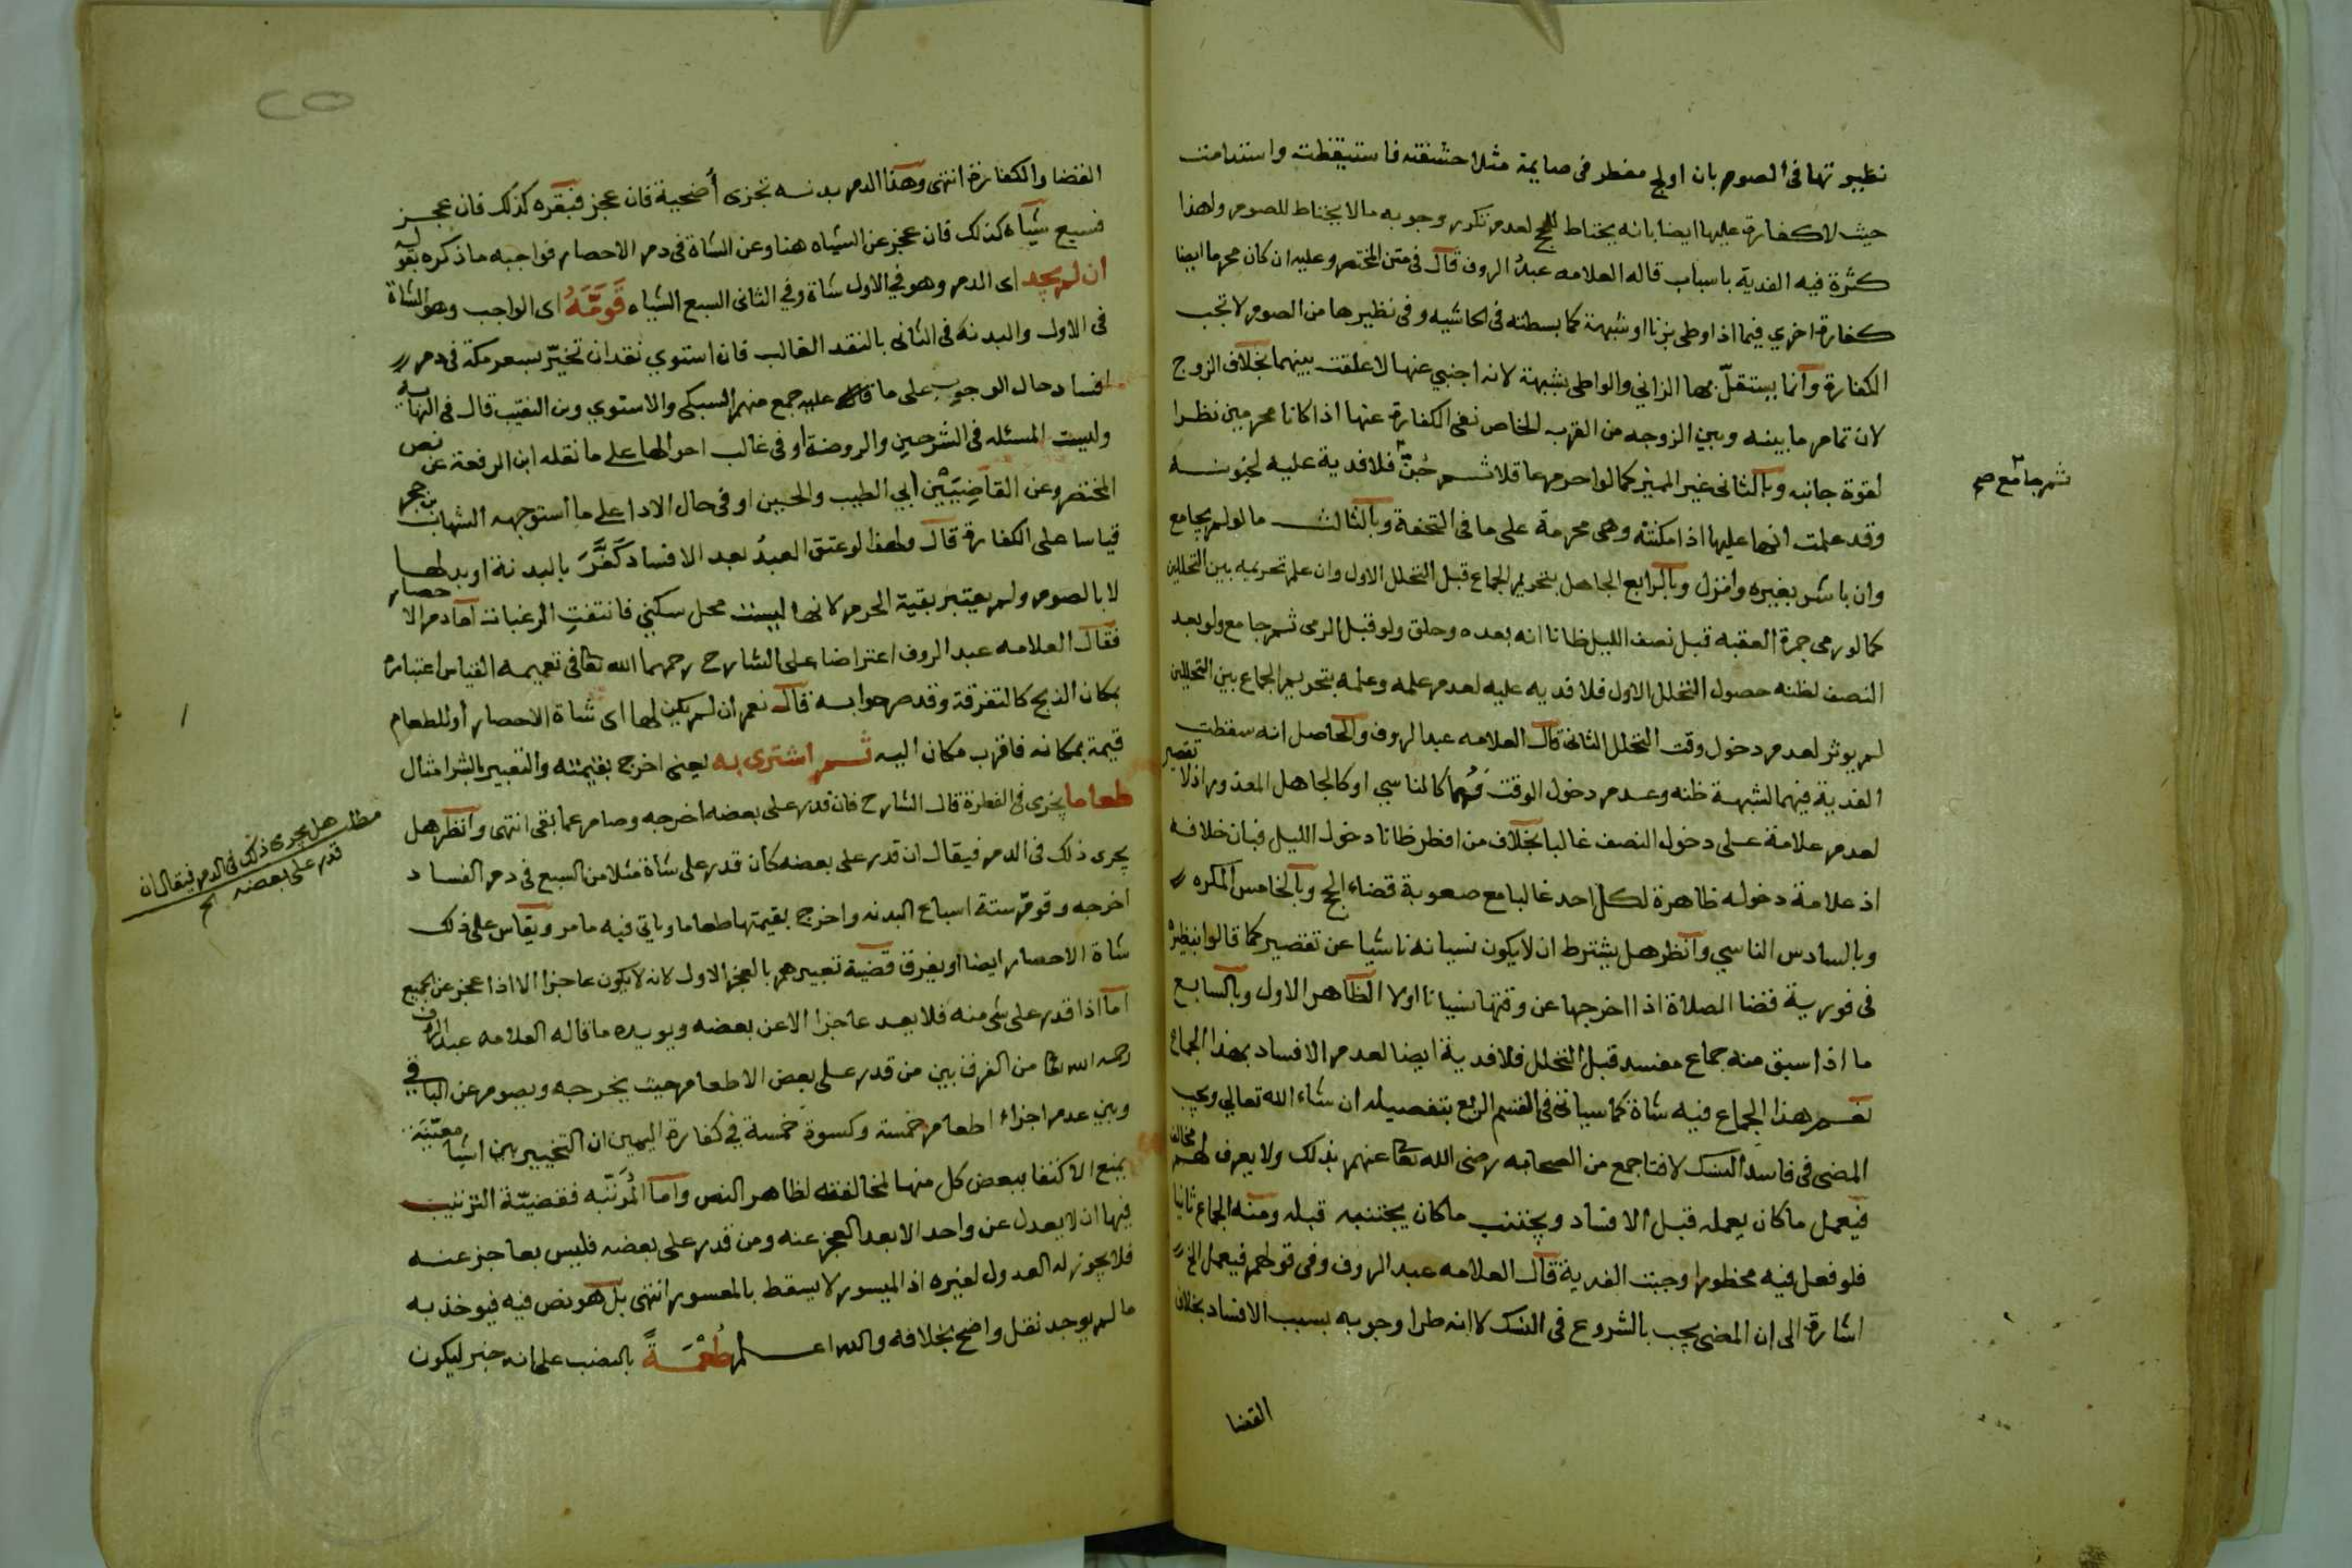 نظيرتها في الصوم بان اولج مفطر في صايمة مثلا حشفته فاستيقظت واستدامت
حيث لا كفارة عليها ايضا بانه يحتاط للحج لعدم تكرر وجوبه ما لا يحتاط للصوم ولهذا
كثرة فيه الفدية باسباب قاله العلامه عبد الروف قال في متن المختصر وعليه ان كان محرما ايضا
كفارة اخري فيما اذا وطى بزنا او شبهة كما بسطته في الحاشيه وفي نظيرها من الصوم لا تجب
الكفارة وانما يستقل بها الزاني والواطى بشبهة لانه اجنبي عنها لا علقت بينهما بخلاف الزوج
لان تمام ما بينه وبين الزوجه من القرب الخاص نفى الكفارة عنها اذا كانا محرمين نظرا
لقوة جانبه وبالثانى غير المميز كما لو احرم عاقلا ثم جن فلا فدية عليه لجنونه
ثم جامع صح
وقد علمت انها عليها اذا مكنته وهي محرمة على ما في التحفة وبالثالث ما لو لم يجامع
وان باشر بغيره وانزل وبالرابع الجاهل بتحريم الجماع قبل التحلل الاول وان علم تحريمه بين التحللين
كما لو رمى جمرة العقبه قبل نصف الليل ظانا انه بعده وحلق ولو قبل الرمى ثم جامع ولو بعد
النصف لظنه حصول التحلل الاول فلا فديه عليه لعدم علمه وعلمه بتحريم الجماع بين التحللين
لم يوثر لعدم دخول وقت التحلل الثانى قال العلامه عبد الروف والحاصل انه سقطت
الفدية فيهما لشبهة ظنه وعدم دخول الوقت فهما كالناسي او كالجاهل المعذور اذ لا تقصير
لعدم علامة على دخول النصف غالبا بخلاف من افطر ظانا دخول الليل فبان خلافه
اذ علامة دخوله ظاهرة لكل احد غالبا مع صعوبة قضاء الحج وبالخامس المكره
وبالسادس الناسي وانظر هل يشترط ان لا يكون نسيانه ناشيا عن تقصير كما قالوا بنظيره
في فورية قضا الصلاة اذا اخرجها عن وقتها نسيانا اولا الظاهر الاول وبالسابع
ما اذا سبق منه جماع مفسد قبل التحلل فلا فدية ايضا لعدم الافساد بهذا الجماع
نعم هذا الجماع فيه شاة كما سياتى في القسم الربع بتفصيله ان شاء الله تعالى ويجب
المضى في فاسد النسك لافتا جمع من الصحابه رضى الله تعا عنهم بذلك ولا يعرف لهم مخالف
فيعمل ما كان يعمله قبل الافساد ويجتنب ما كان يجتنبه قبله ومنه الجماع ثانيا
فلو فعل فيه محظورا وجبت الفدية قال العلامه عبد الروف وفي قولهم فيعمل الخ
اشارة الى ان المضى يجب بالشروع في النسك لا انه طرا وجوبه بسبب الافساد بخلاف
القضا
القضا والكفارة انتهى وهذا الدم بدنه تجزى أضحية فان عجز فبقره كذلك فان عجز
فسبع شياه كذلك فان عجز عن الشياه هنا وعن الشاة في دم الاحصار فواجبه ما ذكره بقوله
ان لم يجد اى الدم وهو في الاول شاة وفي الثانى السبع الشياه قومه اى الواجب وهو الشاة
في الاول والبدنة في الثانى بالنقد الغالب فان استوي نقدان تخير بسعر مكة في دم
افساد حال الوجوب على ما قاله عليه جمع منهم السبكى والاسنوي وبن النقيب قال في النهايه
وليست المسئله في الشرحين والروضة او في غالب احوالها على ما نقله ابن الرفعة عن نص
المختصر وعن القاضيين أبي الطيب والحسين او في حال الادا على ما استوجهه الشهاب بن حجر
قياسا على الكفارة قال ولهذا لو عتق العبد بعد الافساد كفر بالبدنة او بدلها
لا بالصوم ولم يعتبر بقية الحرم لانها ليست محل سكنى فانتفت الرغبات اما دم الاحصار
فقال العلامه عبد الروف اعتراضا على الشارح رحمهما الله تعا في تعميمه القياس اعتباره
بمكان الذبح كالتفرقة وقد مر جوابه قال نعم ان لم يكن لها اى شاة الاحصار أو للطعام
قيمة بمكانه فاقرب مكان اليه ثم اشترى به يعنى اخرج بقيمته والتعبير بالشرا مثال
طعاما يجزى في الفطرة قال الشارح فان قدر على بعضه اخرجه وصام عما بقى انتهى وانظر هل
يجرى ذلك في الدم فيقال ان قدر على بعضه كأن قدر على شاة مثلا من السبع في دم الفساد
مطلب هل يجرى ذلك في الدم فيقال ان
قدر على بعضه الخ
اخرجه وقوم ستة اسباع البدنه واخرج بقيمتها طعاما وياتي فيه ما مر ويقاس على ذلك
شاة الاحصار ايضا او يفرق قضية تعبيرهم بالعجز الاول لانه لا يكون عاجزا الا اذا عجز عن الجميع
اما اذا قدر على شى منه فلا يعد عاجزا الا عن بعضه ويويده ما قاله العلامه عبد الروف
رحمه الله تعا من الفرق بين من قدر على بعض الاطعام حيث يخرجه ويصوم عن الباقي
وبين عدم اجزاء اطعام خمسة وكسوة خمسة في كفارة اليمين ان التخيير بين اشيا معينة
يمنع الاكتفا ببعض كل منها لمخالفته لظاهر النص واما المرتبه فقضية الترتيب
فيها ان لا يعدل عن واحد الا بعد العجز عنه ومن قدر على بعضه فليس بعاجز عنه
فلا يجوز له العدول لغيره اذ الميسور لا يسقط بالمعسور انتهى بل هو نص فيه فيوخذ به
ما لم يوجد نقل واضح بخلافه والله اعلم طعمة بالنصب على انه خبر ليكون